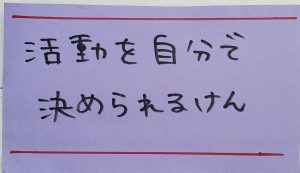 活動を自分で
決められるけん